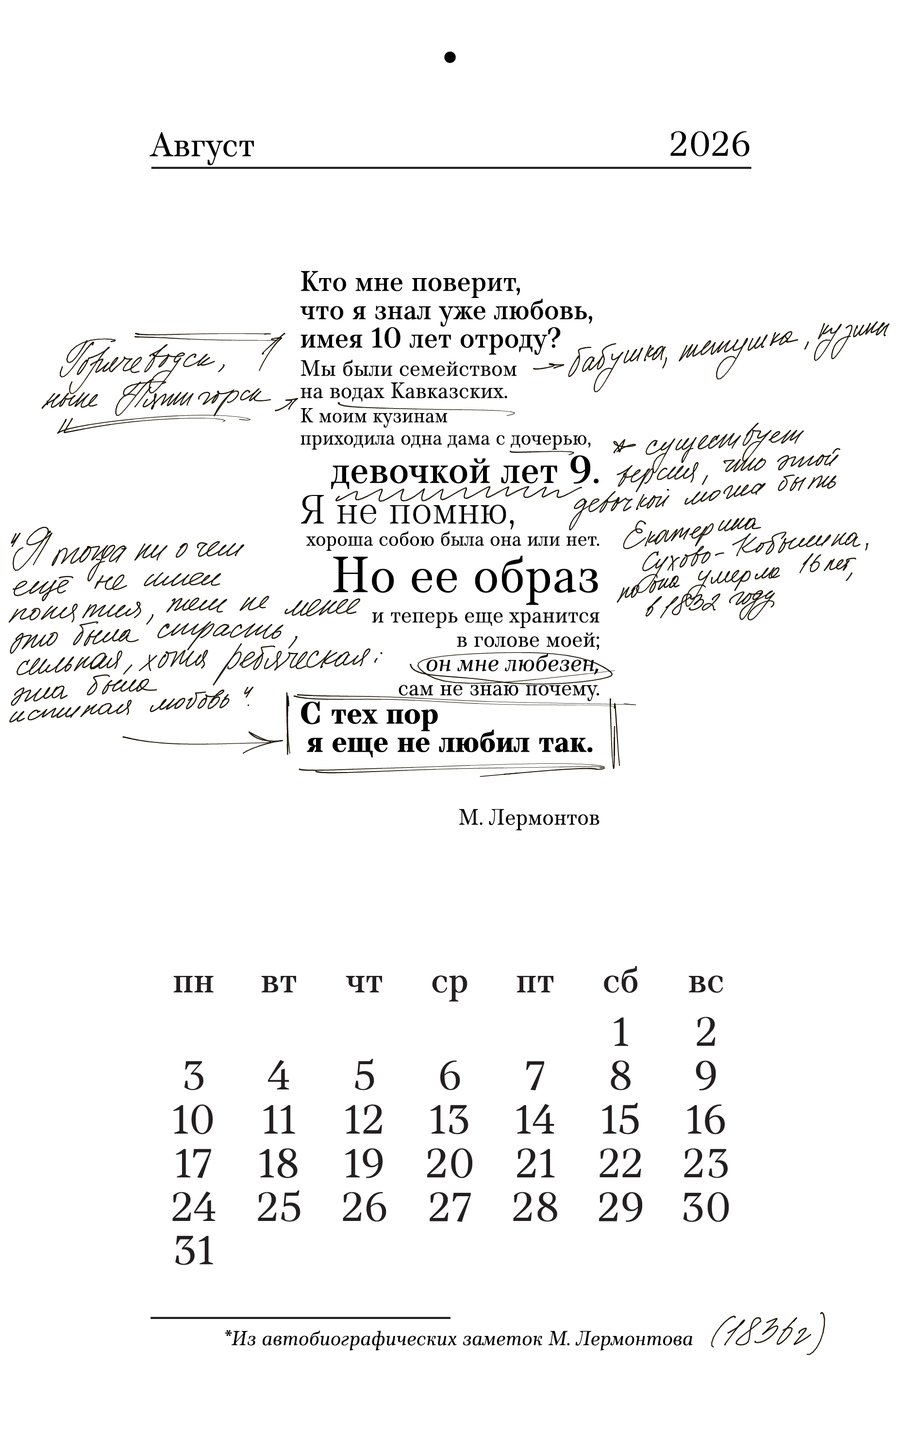 Август 2026
Кто мне поверит,
что я знал уже любовь,
имея 10 лет отроду?
Мы были семейством
на водах Кавказских.
К моим кузинам
приходила одна дама с дочерью,
девочкой лет 9.
Я не помню,
хороша собою была она или нет.
Но ее образ
и теперь еще хранится
в голове моей;
он мне любезен,
сам не знаю почему.
С тех пор
я еще не любил так.
М. Лермонтов
Горячеводск,
ныне Пятигорск
бабушка, тетушка, кузины
* существует
версия, что этой
девочкой могла быть
Екатерина
Сухово-Кобылина,
умерла 16 лет,
в 1832 году
"Я тогда ни о чем
ещё не имел
понятия, тем не менее
это была страсть,
сильная, хотя ребяческая:
эта была
истинная любовь".
пн вт чт ср пт сб вс
1 2
3 4 5 6 7 8 9
10 11 12 13 14 15 16
17 18 19 20 21 22 23
24 25 26 27 28 29 30
31
*Из автобиографических заметок М. Лермонтова (1836г)